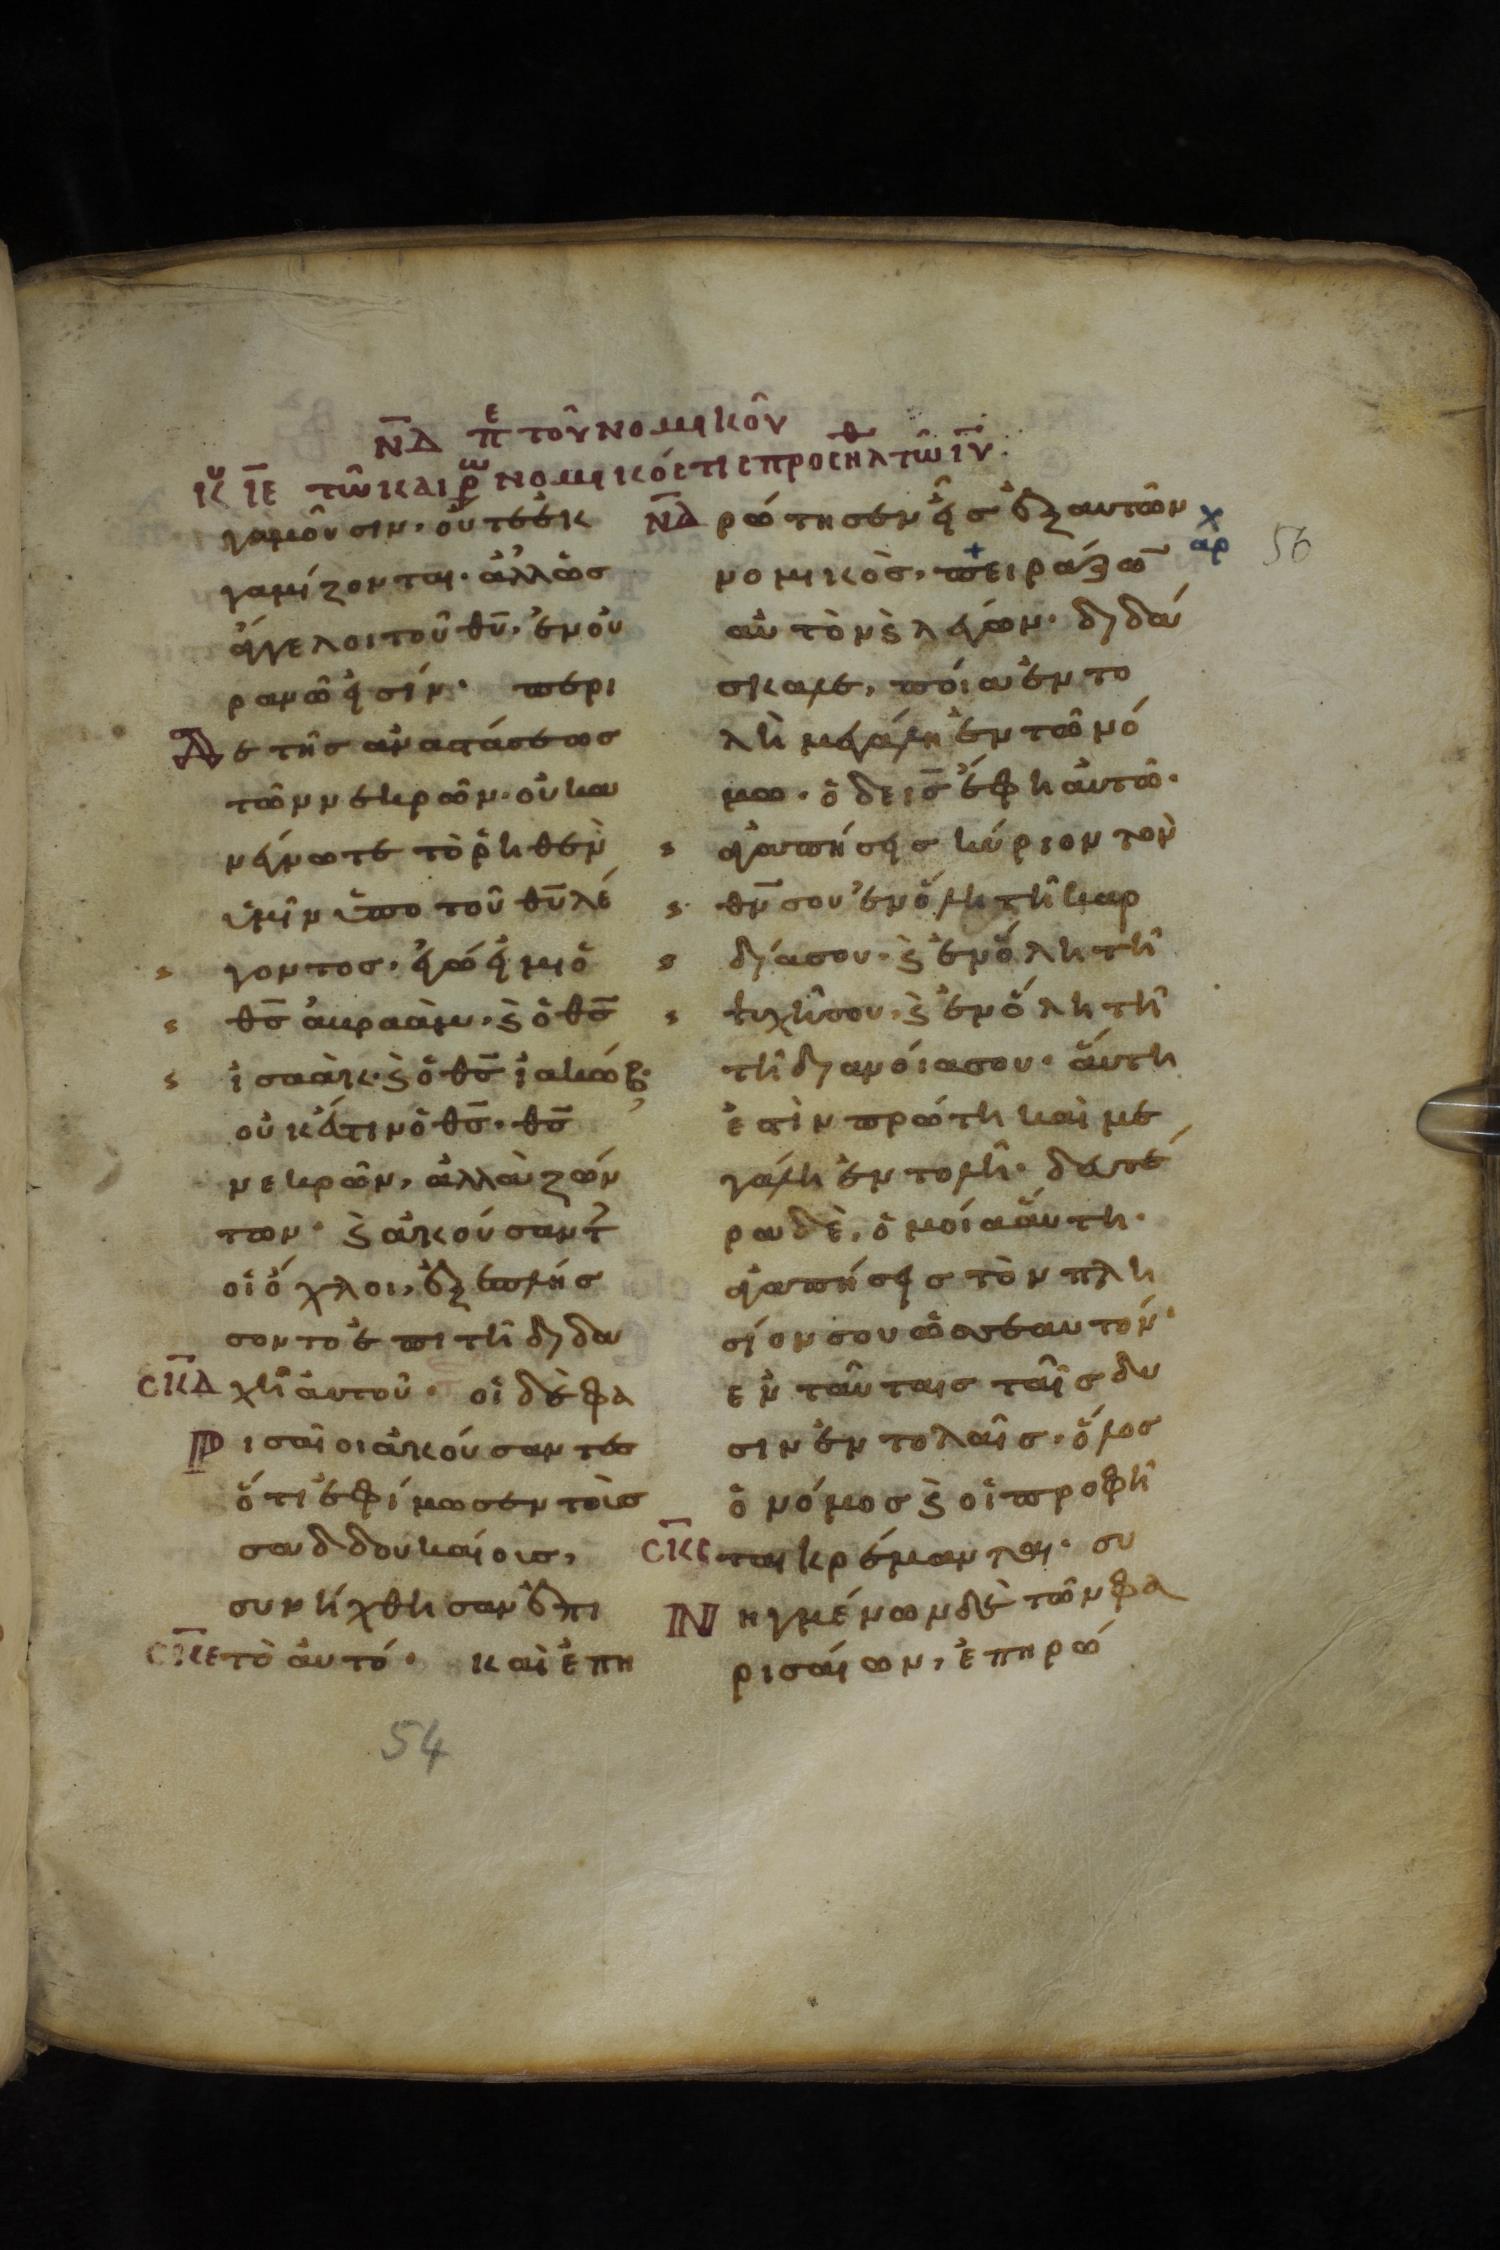 ΝΔ πε τοῦ νομικοῦ
Κυ ΙΕ τῶ καιρῶ νομικός τις προσῆλθ τῶ ιυ.
γαμοῦσιν, οὔτε ἐκ
γαμίζονται· ἀλλ' ὡσ
ἄγγελοι τοῦ θυ, ἐν οὐ
ρανῶ εἰσίν· περι
Δε τῆσ ἀναστάσεωσ
τῶν νεκρῶν· οὐκ ἀ
νέγνωτε τὸ ῥηθὲν
ὑμῖν ὑπο τοῦ θυ λέ
γοντοσ· ἐγώ εἰμι ὁ
θσ ἀβραὰμ, ϗ ὁ θσ
ἰσαὰκ· ϗ ὁ θσ ἰακώβ·
οὐκ ἔστιν ὁ θσ· θσ
νεκρῶν, ἀλλὰ ζών
των· ϗ ἀκούσαντ
οἱ ὄχλοι, ἐξεπλήσ
σοντο ἐπι τῆ διδα
ΣΚΔ χῆ αὐτοῦ· οἱ δὲ φα
Ρισαῖοι ἀκούσαντεσ
ὅτι ἐφίμωσεν τοὺσ
σαδδουκαίουσ,
συνήχθησαν ἐπι
ΣΚΕ τὸ ἀυτό· καὶ ἐπη
ΝΔ ρώτησεν εἷσ ἐξ αυτῶν
νομικὸσ, + πειράζω
χ
αρ
56
αὐτὸν ϗ λέγων· διδά
σκαλε, ποία ἐντο
λὴ μεγάλη ἐν τῶ νό
μω· ὁ δε ισ ἔφη αὐτῶ·
ἀγαπήσεισ κύριον τον
θν σου ἐν ὅλη τῆ καρ
δία σου· ϗ ἐν ὅλη τῆ
ψυχῆ σου, ϗ ἐν ὅλη τῆ
τῆ διανόια σου· ἅυτη
ἐστὶν πρώτη καὶ με
γάλη ἐντολὴ· δευτέ
ρα δὲ, ὁμοία ἀύτη·
ἀγαπήσεισ τὸν πλη
σίον σου ὡσ σεαυτόν·
ἐν ταύταισ ταῖσ δυ
σιν ἐντολαῖσ· ὅλοσ
ὁ νόμοσ ϗ οἱ προφῆ
ΣΚϚ ται κρέμανται· συ
Νηγμένων δὲ τῶν φα
ρισαίων, ἐπηρώ
54